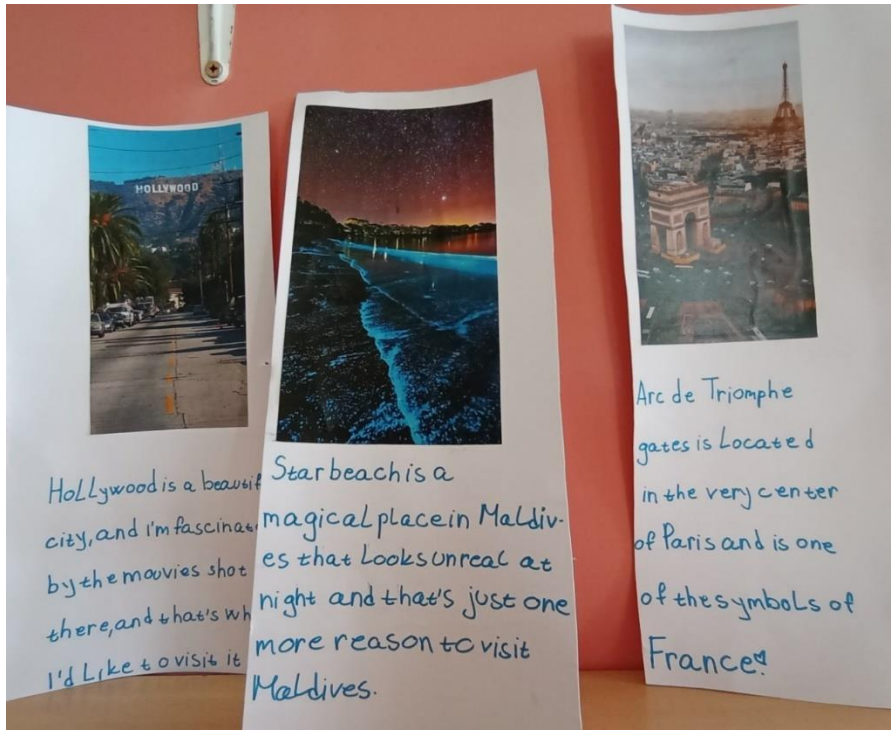 HOLLYWOOD
Hollywood is a beautif
city, and I'm fascinat
by the mouvies shot
there, and that's wh
I'd Like to visit it
Star beach is a
magical place in Maldiv-
es that Looks unreal at
night and that's just one
more reason to visit
Maldives.
Arc de Triomphe
gates is Located
in the very center
of Paris and is one
of the symbols of
France